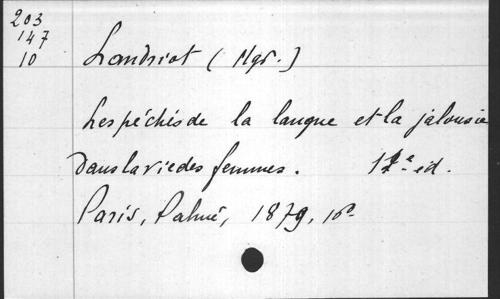 203
147
10
Landriot (Mgr.)
Les péchés de la langue et la jalousie
dans la vie des femmes. 12e éd.
Paris, Palmé, 1879,